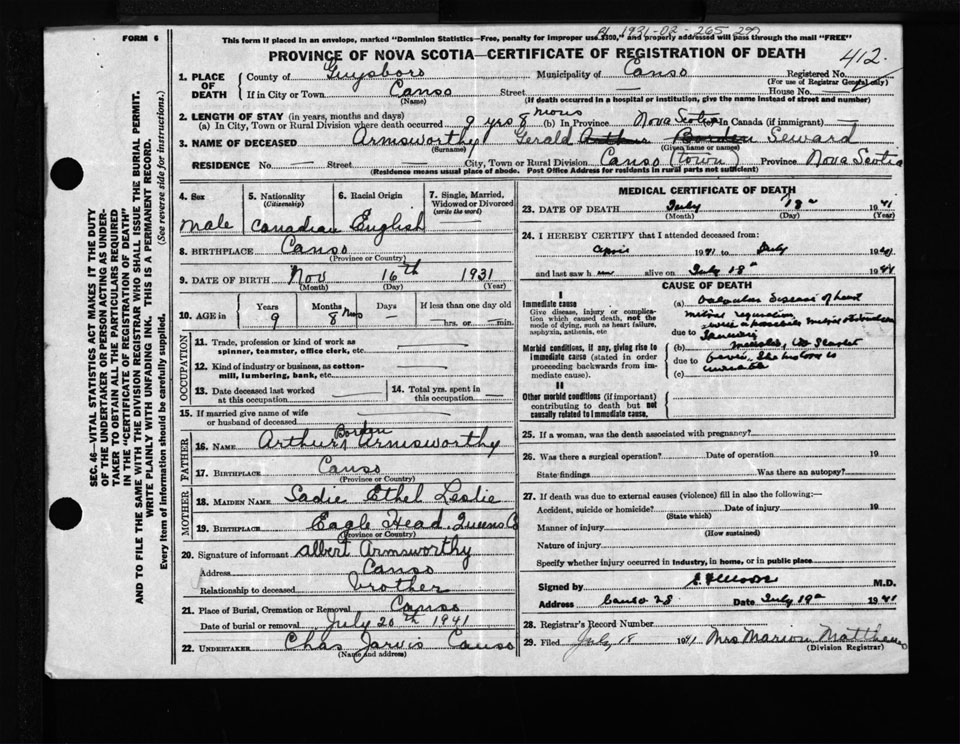 FORM 6
This form if placed in an envelope, marked "Dominion Statistics—Free, penalty for improper use $300," and properly addressed will pass through the mail "FREE"
1931-02-265 297
PROVINCE OF NOVA SCOTIA—CERTIFICATE OF REGISTRATION OF DEATH
412
1. PLACE OF DEATH
County of Guysboro Municipality of Canso Registered No.
(For use of Registrar General only)
If in City or Town Canso Street — House No. —
(Name) (If death occurred in a hospital or institution, give the name instead of street and number)
2. LENGTH OF STAY (in years, months and days)
(a) In City, Town or Rural Division where death occurred 9 yrs 8 mos (b) In Province Nova Scotia (c) In Canada (if immigrant) —
3. NAME OF DECEASED Armsworthy Gerald Arthur Borden Seward
(Surname) (Given name or names)
RESIDENCE No. — Street City, Town or Rural Division Canso (town) Province Nova Scotia
(Residence means usual place of abode. Post Office Address for residents in rural parts not sufficient)
SEC. 46—VITAL STATISTICS ACT MAKES IT THE DUTY
OF THE UNDERTAKER OR PERSON ACTING AS UNDER-
TAKER TO OBTAIN ALL THE PARTICULARS REQUIRED
IN THE "CERTIFICATE OF REGISTRATION OF DEATH"
AND TO FILE THE SAME WITH THE DIVISION REGISTRAR WHO SHALL ISSUE THE BURIAL PERMIT.
WRITE PLAINLY WITH UNFADING INK. THIS IS A PERMANENT RECORD.
Every item of information should be carefully supplied. (See reverse side for instructions.)
4. Sex
Male
5. Nationality
(Citizenship)
Canadian
6. Racial Origin
English
7. Single, Married,
Widowed or Divorced
(write the word)
8. BIRTHPLACE Canso
(Province or Country)
9. DATE OF BIRTH Nov 16th 1931
(Month) (Day) (Year)
10. AGE in
Years Months Days If less than one day old
9 8 mos — hrs. or min.
OCCUPATION
11. Trade, profession or kind of work as
spinner, teamster, office clerk, etc.
12. Kind of industry or business, as cotton-
mill, lumbering, bank, etc.
13. Date deceased last worked
at this occupation
14. Total yrs. spent in
this occupation
15. If married give name of wife
or husband of deceased
FATHER
Borden
16. NAME Arthur Armsworthy
17. BIRTHPLACE Canso
(Province or Country)
MOTHER
18. MAIDEN NAME Sadie Ethel Leslie
19. BIRTHPLACE Eagle Head, Queens Co
(Province or Country)
20. Signature of informant Albert Armsworthy
Address Canso
Relationship to deceased brother
21. Place of Burial, Cremation or Removal Canso
Date of burial or removal July 20th 1941
22. UNDERTAKER Chas Jarvis Canso
(Name and address)
MEDICAL CERTIFICATE OF DEATH
23. DATE OF DEATH July 18 1941
(Month) (Day) (Year)
24. I HEREBY CERTIFY that I attended deceased from:
April 1941 to July 1941
and last saw him alive on July 18 1941
CAUSE OF DEATH
I
Immediate cause
Give disease, injury or complica-
tion which caused death, not the
mode of dying, such as heart failure,
asphyxia, asthenia, etc
Morbid conditions, if any, giving rise to
immediate cause (stated in order
proceeding backwards from im-
mediate cause).
II
Other morbid conditions (if important)
contributing to death but not
causally related to immediate cause.
(a) Valvular disease of heart
mitral
due to
(b)
due to
(c)
25. If a woman, was the death associated with pregnancy?
26. Was there a surgical operation? Date of operation 19
State findings Was there an autopsy?
27. If death was due to external causes (violence) fill in also the following:—
Accident, suicide or homicide? Date of injury 19
(State which)
Manner of injury
(How sustained)
Nature of injury
Specify whether injury occurred in industry, in home, or in public place
Signed by M.D.
Address Canso NS Date July 19 1941
28. Registrar's Record Number
29. Filed July 18 1941 Mrs Marion Matthews
(Division Registrar)